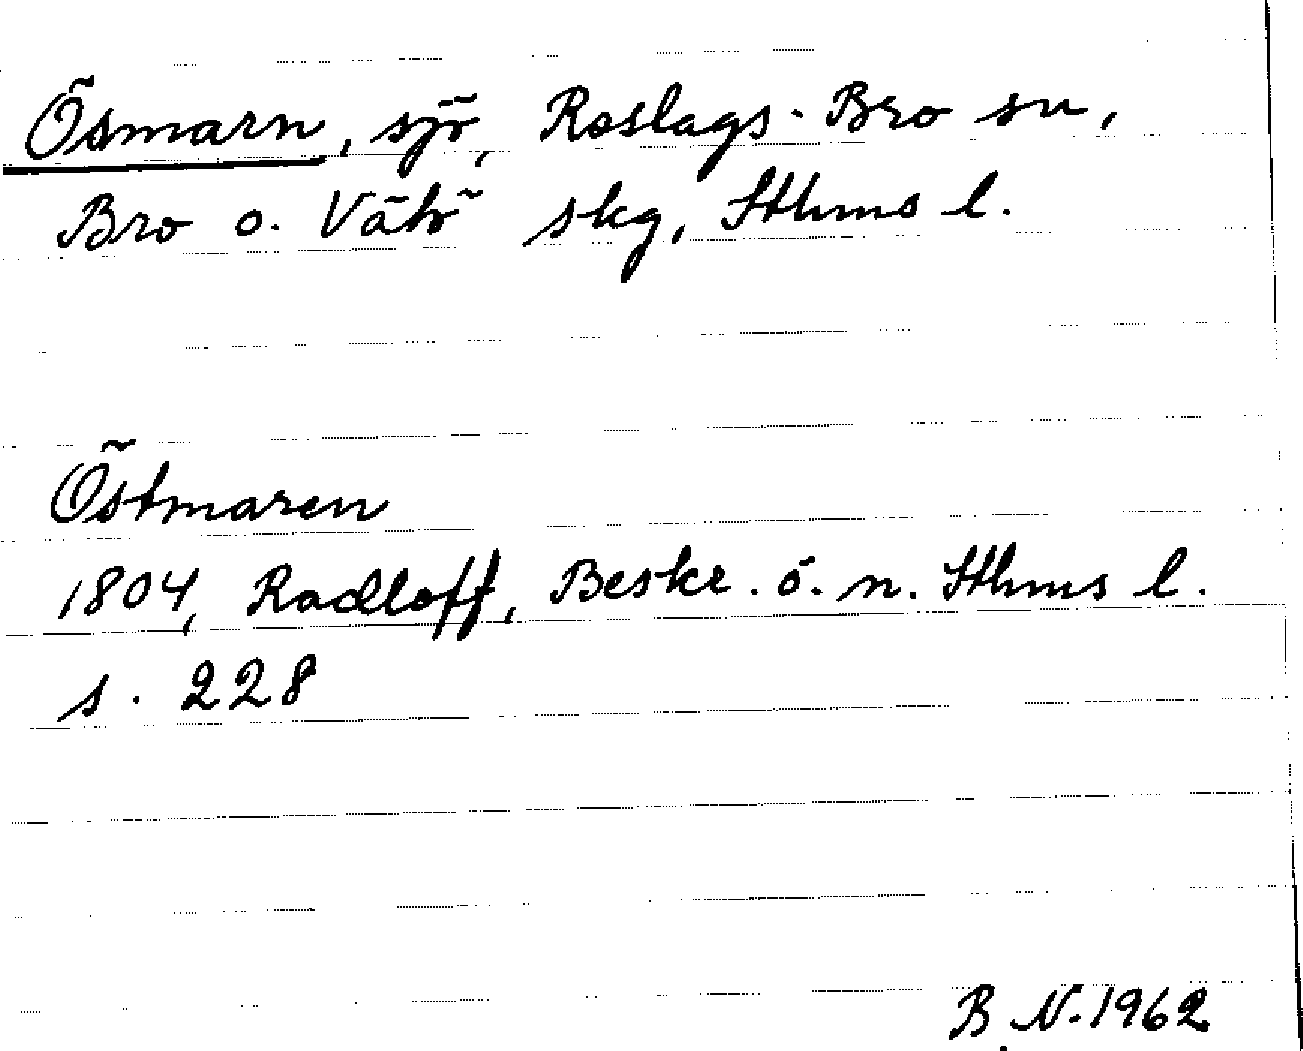 Ösmarn, sjö, Roslags-Bro sn,
Bro o. Vätö skg, Sthms l.
Östmaren
1804, Radloff, Beskr. ö. n. Sthms l.
s. 228
B. N. 1962